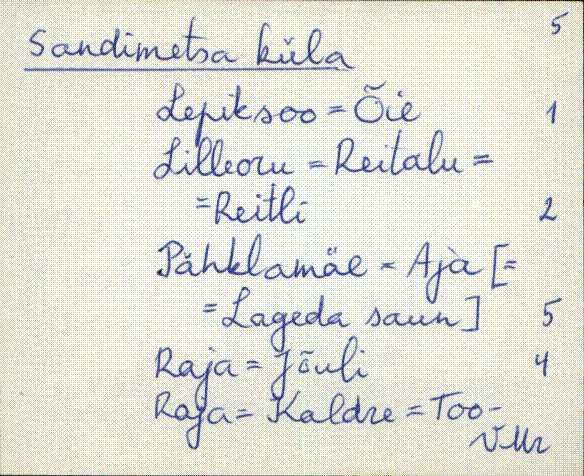 5
Sandimetsa küla
Lepiksoo = Õie 1
Lilleoru = Reitalu =
= Reitli 2
Pähklamäe = Ajà [=
= Lageda saun] 5
Raja = Jõuli 4
Raja = Kaldre = Too-